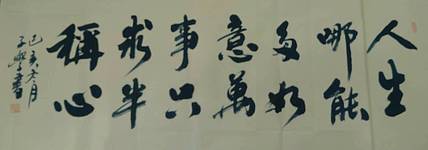 人生
哪能
多如
意萬
事只
求半
稱心
己亥冬月
子安書